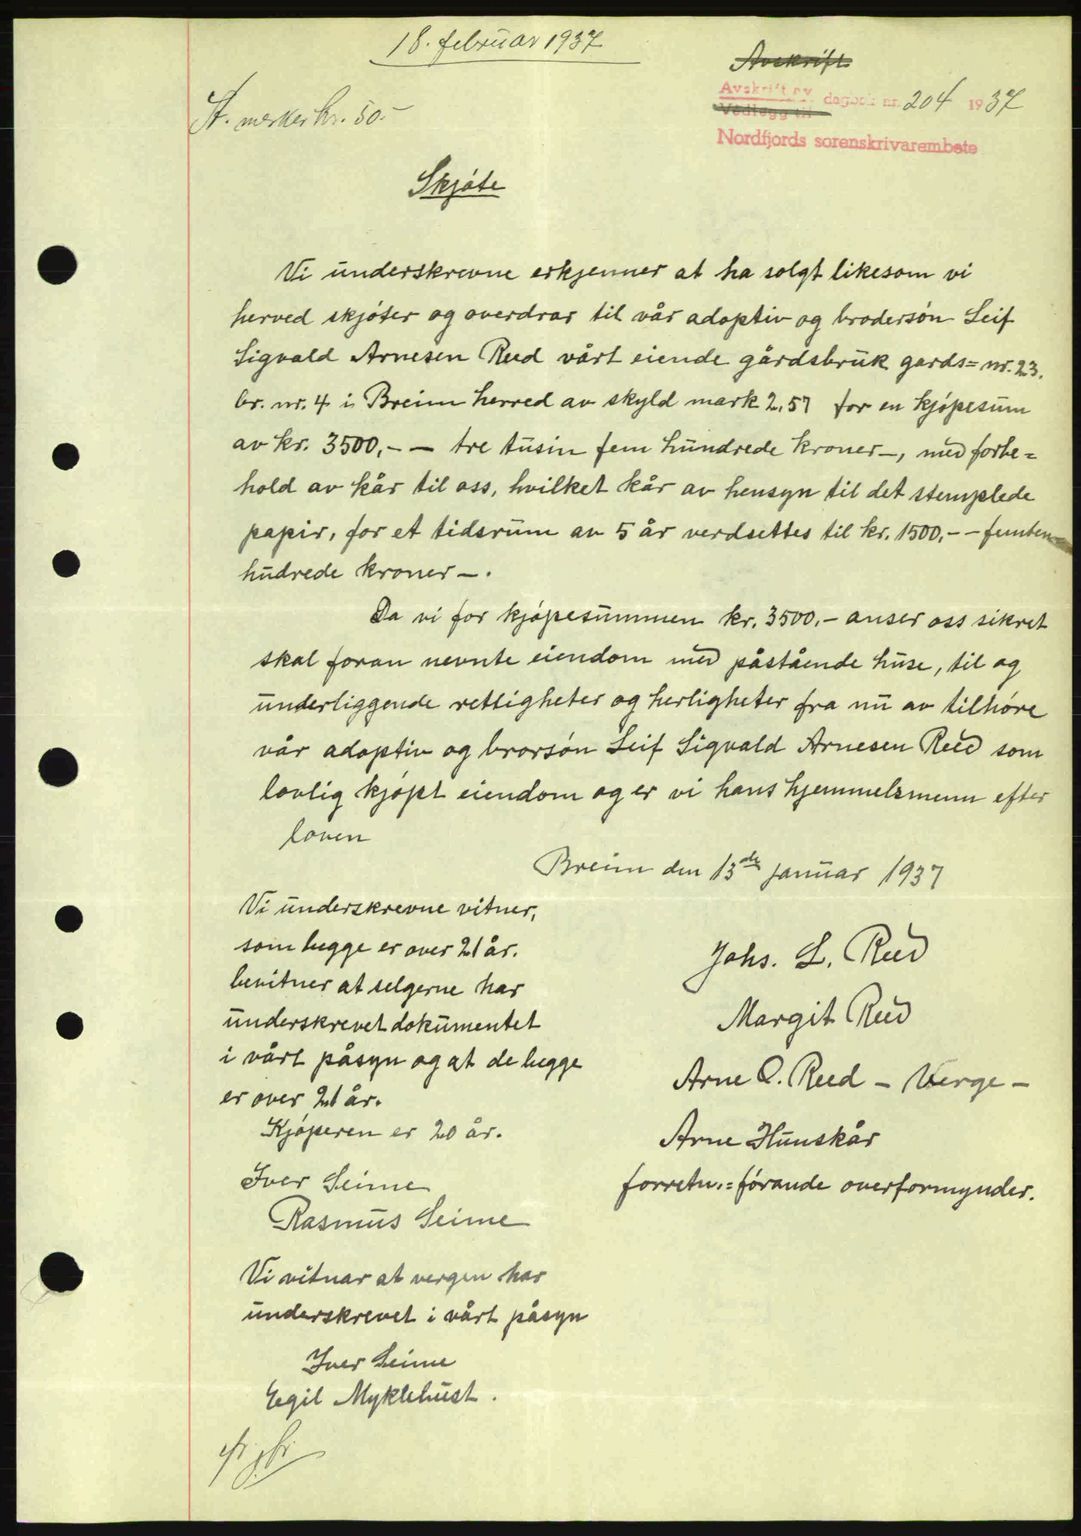 18. februar 1937
Avskrift
St. merker kr. 50.-
Avskrift av
Vedlegg til dagbok nr. 204 1937
Nordfjords sorenskrivarembete
Skjøte
Vi underskrevne erkjenner at ha solgt likesom vi
herved skjøter og overdrar til vår adoptiv og brodersøn Leif
Sigvald Arnesen Reed vårt eiende gårdsbruk gards= nr. 23.
br. nr. 4 i Breim herred av skyld mark 2,57 for en kjøpesum
av kr. 3500,- - tre tusin fem hundrede kroner-, med forbe=
hold av kår til oss, hvilket kår av hensyn til det stemplede
papir, for et tidsrum av 5 år verdsettes til kr. 1500,- - femten
hudrede kroner -.
Da vi for kjøpesummen kr. 3500,- anser oss sikret
skal foran nevnte eiendom med påstående huse, til og
underliggende rettigheter og herligheter fra nu av tilhøre
vår adoptiv og brorsøn Leif Sigvald Arnesen Reed som
lovlig kjøpt eiendom og er vi hans hjemmelsmenn efter
loven
Breim den 13de januar 1937
Vi underskrevne vitner,
som begge er over 21 år.
bevitner at selgerne har
underskrevet dokumentet
i vårt påsyn og at de begge
er over 21 år.
Kjøperen er 20 år.
Iver Seime
Rasmus Seime
Johs. L. Reed
Margit Reed
Arne O. Reed - Verge -
Arne Hunskår
forretn.= førande overformynder.
Vi vitnar at vergen har
underskrevet i vårt påsyn
Iver Seime
Egil Myklebust.